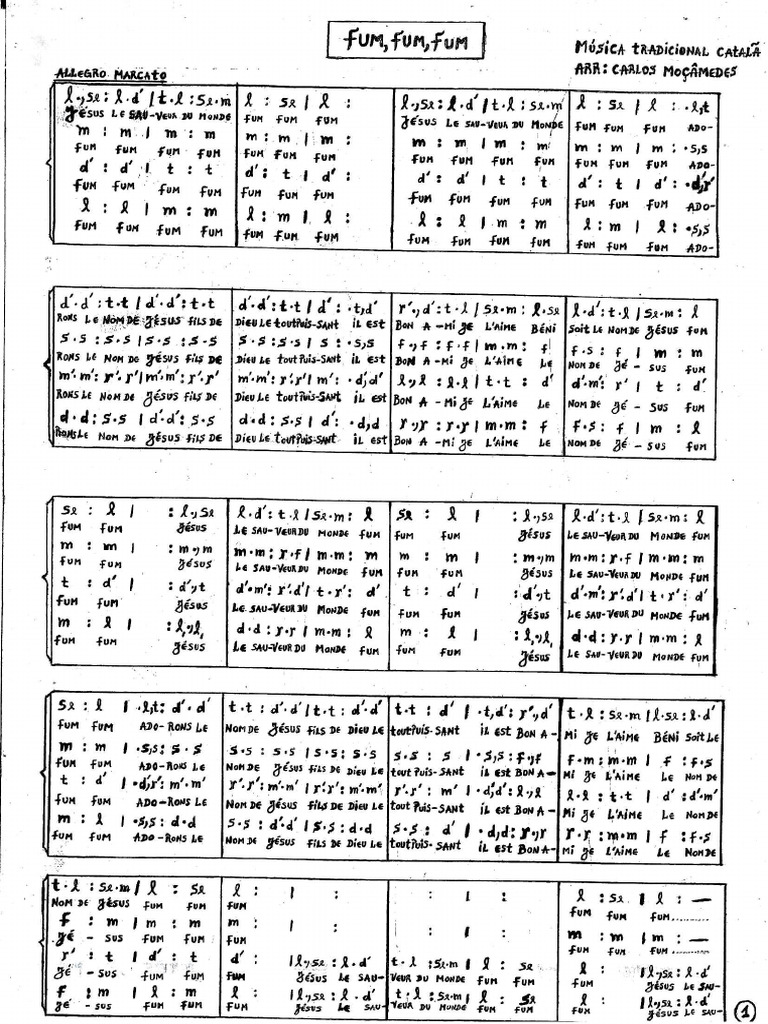 FUM, FUM, FUM
MÚSICA TRADICIONAL CATALÃ
ARR: CARLOS MOÇÂMEDES
ALLEGRO MARCATO
l.,se: l.d' | t.l : se.m l : se | l : l.,se: l.d' | t.l : se.m l : se | l : .l,t
JÉSUS LE SAU-VEUR DU MONDE FUM FUM FUM JÉSUS LE SAU-VEUR DU MONDE FUM FUM FUM ADO-
m : m | m : m m : m | m : m : m | m : m m : m | m : .s,s
FUM FUM FUM FUM FUM FUM FUM FUM FUM FUM FUM FUM FUM FUM ADO-
d' : d' | t : t d' : t | d' : d' : d' | t : t d' : t | d' : .d',r'
FUM FUM FUM FUM FUM FUM FUM FUM FUM FUM FUM FUM FUM FUM ADO-
l : l | m : m l : m | l : l : l | m : m l : m | l : .s,s
FUM FUM FUM FUM FUM FUM FUM FUM FUM FUM FUM FUM FUM FUM ADO-
d'.d' : t.t | d'.d' : t.t d'.d' : t.t | d' : .t,d' r'.,d' : t.l | se.m : l.se l.d' : t.l | se.m : l
RONS LE NOM DE JÉSUS FILS DE DIEU LE TOUT PUIS-SANT IL EST BON A-MI JE L'AIME BÉNI SOIT LE NOM DE JÉSUS FUM
s.s : s.s | s.s : s.s s.s : s.s | s : .s,s f.,f : f.f | m.m : f f.s : f | m : m
RONS LE NOM DE JÉSUS FILS DE DIEU LE TOUT PUIS-SANT IL EST BON A-MI JE L'AIME LE NOM DE JÉ - SUS FUM
m'.m' : r'.r' | m'.m' : r'.r' m'.m' : r'.r' | m' : .d',d' l.,l : l.l | t.t : d' d'.m' : r' | t : d'
RONS LE NOM DE JÉSUS FILS DE DIEU LE TOUT PUIS-SANT IL EST BON A-MI JE L'AIME LE NOM DE JÉ - SUS FUM
d.d : s.s | d.d : s.s d.d : s.s | d : .d,d r.,r : r.r | m.m : f f.s : f | m : l
RONS LE NOM DE JÉSUS FILS DE DIEU LE TOUT PUIS-SANT IL EST BON A-MI JE L'AIME LE NOM DE JÉ - SUS FUM
se : l | : l.,se l.d' : t.l | se.m : l se : l | : l.,se l.d' : t.l | se.m : l
FUM FUM JÉSUS LE SAU-VEUR DU MONDE FUM FUM FUM JÉSUS LE SAU-VEUR DU MONDE FUM
m : m | : m.,m m.m : r.f | m.m : m m : m | : m.,m m.m : r.f | m.m : m
FUM FUM JÉSUS LE SAU-VEUR DU MONDE FUM FUM FUM JÉSUS LE SAU-VEUR DU MONDE FUM
t : d' | : d'.,t d'.m' : r'.d' | t.r' : d' t : d' | : d'.,t d'.m' : r'.d' | t.r' : d'
FUM FUM JÉSUS LE SAU-VEUR DU MONDE FUM FUM FUM JÉSUS LE SAU-VEUR DU MONDE FUM
m : l | : l.,l d.d : r.r | m.m : l m : l | : l.,l d.d : r.r | m.m : l
FUM FUM JÉSUS LE SAU-VEUR DU MONDE FUM FUM FUM JÉSUS LE SAU-VEUR DU MONDE FUM
se : l | .l,t : d'.d' t.t : d'.d' | t.t : d'.d' t.t : d' | .t,d' : r'.,d' t.l : se.m | l.se : l.d'
FUM FUM ADO-RONS LE NOM DE JÉSUS FILS DE DIEU LE TOUT PUIS-SANT IL EST BON A- MI JE L'AIME BÉNI SOIT LE
m : m | .s,s : s.s s.s : s.s | s.s : s.s s.s : s | .s,s : f.,f f.m : m.m | f : f.s
FUM FUM ADO-RONS LE NOM DE JÉSUS FILS DE DIEU LE TOUT PUIS-SANT IL EST BON A- MI JE L'AIME LE NOM DE
t : d' | .d',r' : m'.m' r'.r' : m'.m' | r'.r' : m'.m' r'.r' : m' | .d',d' : l.,l l.l : t.t | d' : d'.m'
FUM FUM ADO-RONS LE NOM DE JÉSUS FILS DE DIEU LE TOUT PUIS-SANT IL EST BON A- MI JE L'AIME LE NOM DE
m : l | .s,s : d.d s.s : d'.d' | s.s : d.d s.s : d' | .d,d : r.,r r.r : m.m | f : f.s
FUM FUM ADO-RONS LE NOM DE JÉSUS FILS DE DIEU LE TOUT PUIS-SANT IL EST BON A- MI JE L'AIME LE NOM DE
t.l : se.m | l : se l : | : : | : l : se | l : —
NOM DE JÉSUS FUM FUM FUM FUM FUM FUM..........
f : m | m : m m : | : : | : m : m | m : —
JÉ - SUS FUM FUM FUM FUM FUM FUM..........
r' : t | d' : t d' : | l.,se : l.d' t.l : se.m | l : se l : | l.,se : l.d'
JÉ - SUS FUM FUM FUM JÉSUS LE SAU- VEUR DU MONDE FUM FUM FUM JÉSUS LE SAU-
f : m | l : m l : | l.,se : l.d' t.l : se.m | l : se l : | l.,se : l.d'
JÉ - SUS FUM FUM FUM JÉSUS LE SAU- VEUR DU MONDE FUM FUM FUM JÉSUS LE SAU-
1